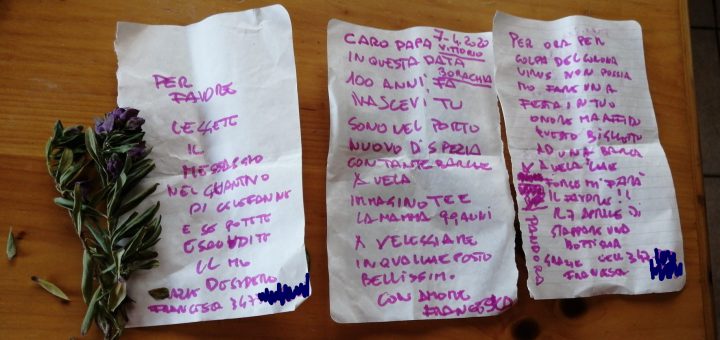 PER
FAVORE
LEGGETE
IL
MESSAGGIO
NEL GUANTINO
DI CELEFONNE
E SE POTETE
ESAUDITE
IL MIO
DESIDERIO
FRANCESCA 347
CARO PAPÀ 7-4.2020
VITTORIO
IN QUESTA DATA
BORACHIA
100 ANNI FA
NASCEVI TU
SONO NEL PORTO
NUOVO DI SPEZIA
CON TANTE BARCHE
X VELA
IMMAGINO TE E
LA MAMMA 99 ANNI
X VELEGGIARE
IN QUALCHE POSTO
BELLISSIMO.
CON AMORE
FRANCESCA
PER ORA PER
COLPA DEL CORONA
VIRUS NON POSSIA
MO FARE UNA
FESTA IN TUO
ONORE MA AFFIDO
QUESTO BIGLIETTO
AD UNA BARCA
X A VELA CHE
FORSE MI FARÀ
IL FAVORE IL
IL 7 APRILE DI
STAPPARE UNA
BOTTIGLIA
GRAZIE CELL 347
FRANCESCA
PANDORA